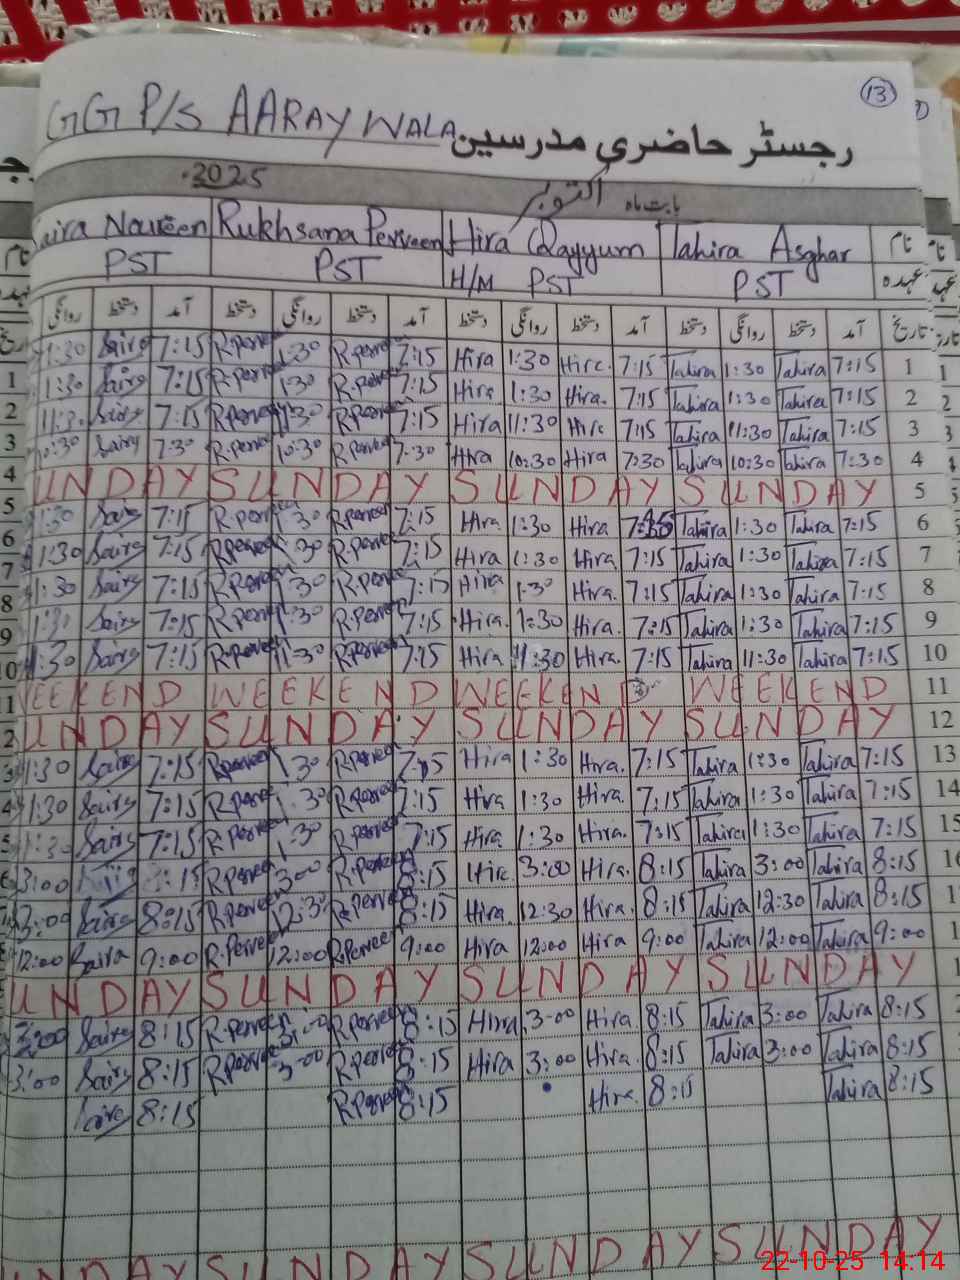 13
GG P/S AARAY WALA رجسٹر حاضری مدرسین
2025 اکتوبر بابت ماہ
Saira Noureen Rukhsana Perveen Hira Qayyum Tahira Asghar نام
PST PST H/M PST PST عہدہ
روانگی دستخط آمد دستخط روانگی دستخط آمد دستخط روانگی دستخط آمد دستخط روانگی دستخط آمد تاریخ
1:30 Saira 7:15 R.perveen 1:30 R.perveen 7:15 Hira 1:30 Hira 7:15 Tahira 1:30 Tahira 7:15 1
1:30 Saira 7:15 R.perveen 1:30 R.perveen 7:15 Hira 1:30 Hira. 7:15 Tahira 1:30 Tahira 7:15 2
11:30 Saira 7:15 R.perveen 11:30 R.perveen 7:15 Hira 11:30 Hira 7:15 Tahira 11:30 Tahira 7:15 3
10:30 Saira 7:30 R.perveen 10:30 R.perveen 7:30 Hira 10:30 Hira 7:30 Tahira 10:30 Tahira 7:30 4
SUNDAY SUNDAY SUNDAY SUNDAY 5
1:30 Saira 7:15 R.perveen 1:30 R.perveen 7:15 Hira 1:30 Hira Tahira 1:30 Tahira 7:15 6
1:30 Saira 7:15 R.perveen 1:30 R.perveen 7:15 Hira 1:30 Hira 7:15 Tahira 1:30 Tahira 7:15 7
1:30 Saira 7:15 R.perveen 1:30 R.perveen 7:15 Hira 1:30 Hira. 7:15 Tahira 1:30 Tahira 7:15 8
1:30 Saira 7:15 R.perveen 1:30 R.perveen 7:15 Hira. 1:30 Hira. 7:15 Tahira 1:30 Tahira 7:15 9
11:30 Saira 7:15 R.perveen 11:30 R.perveen 7:15 Hira 11:30 Hira. 7:15 Tahira 11:30 Tahira 7:15 10
WEEKEND WEEKEND WEEKEND WEEKEND 11
SUNDAY SUNDAY SUNDAY SUNDAY 12
1:30 Saira 7:15 R.perveen 1:30 R.perveen 7:15 Hira 1:30 Hira. 7:15 Tahira 1:30 Tahira 7:15 13
1:30 Saira 7:15 R.perveen 1:30 R.perveen 7:15 Hira 1:30 Hira. 7:15 Tahira 1:30 Tahira 7:15 14
1:30 Saira 7:15 R.perveen 1:30 R.perveen 7:15 Hira 1:30 Hira. 7:15 Tahira 1:30 Tahira 7:15 15
3:00 8:15 R.perveen 3:00 R.perveen 8:15 Hira 3:00 Hira. 8:15 Tahira 3:00 Tahira 8:15
3:00 Saira 8:15 R.perveen 12:30 R.perveen 8:15 Hira 12:30 Hira. 8:15 Tahira 12:30 Tahira 8:15
12:00 Saira 9:00 R.Perveen 12:00 R.Perveen 9:00 Hira 12:00 Hira 9:00 Tahira 12:00 Tahira 9:00
SUNDAY SUNDAY SUNDAY SUNDAY
3:00 Saira 8:15 R.perveen R.perveen 8:15 Hira 3:00 Hira 8:15 Tahira 3:00 Tahira 8:15
3:00 Saira 8:15 R.perveen 3:00 R.perveen 8:15 Hira 3:00 Hira 8:15 Tahira 3:00 Tahira 8:15
Saira 8:15 R.perveen 8:15 Hira 8:15 Tahira 8:15
SUNDAY SUNDAY SUNDAY SUNDAY
22-10-25 14:14